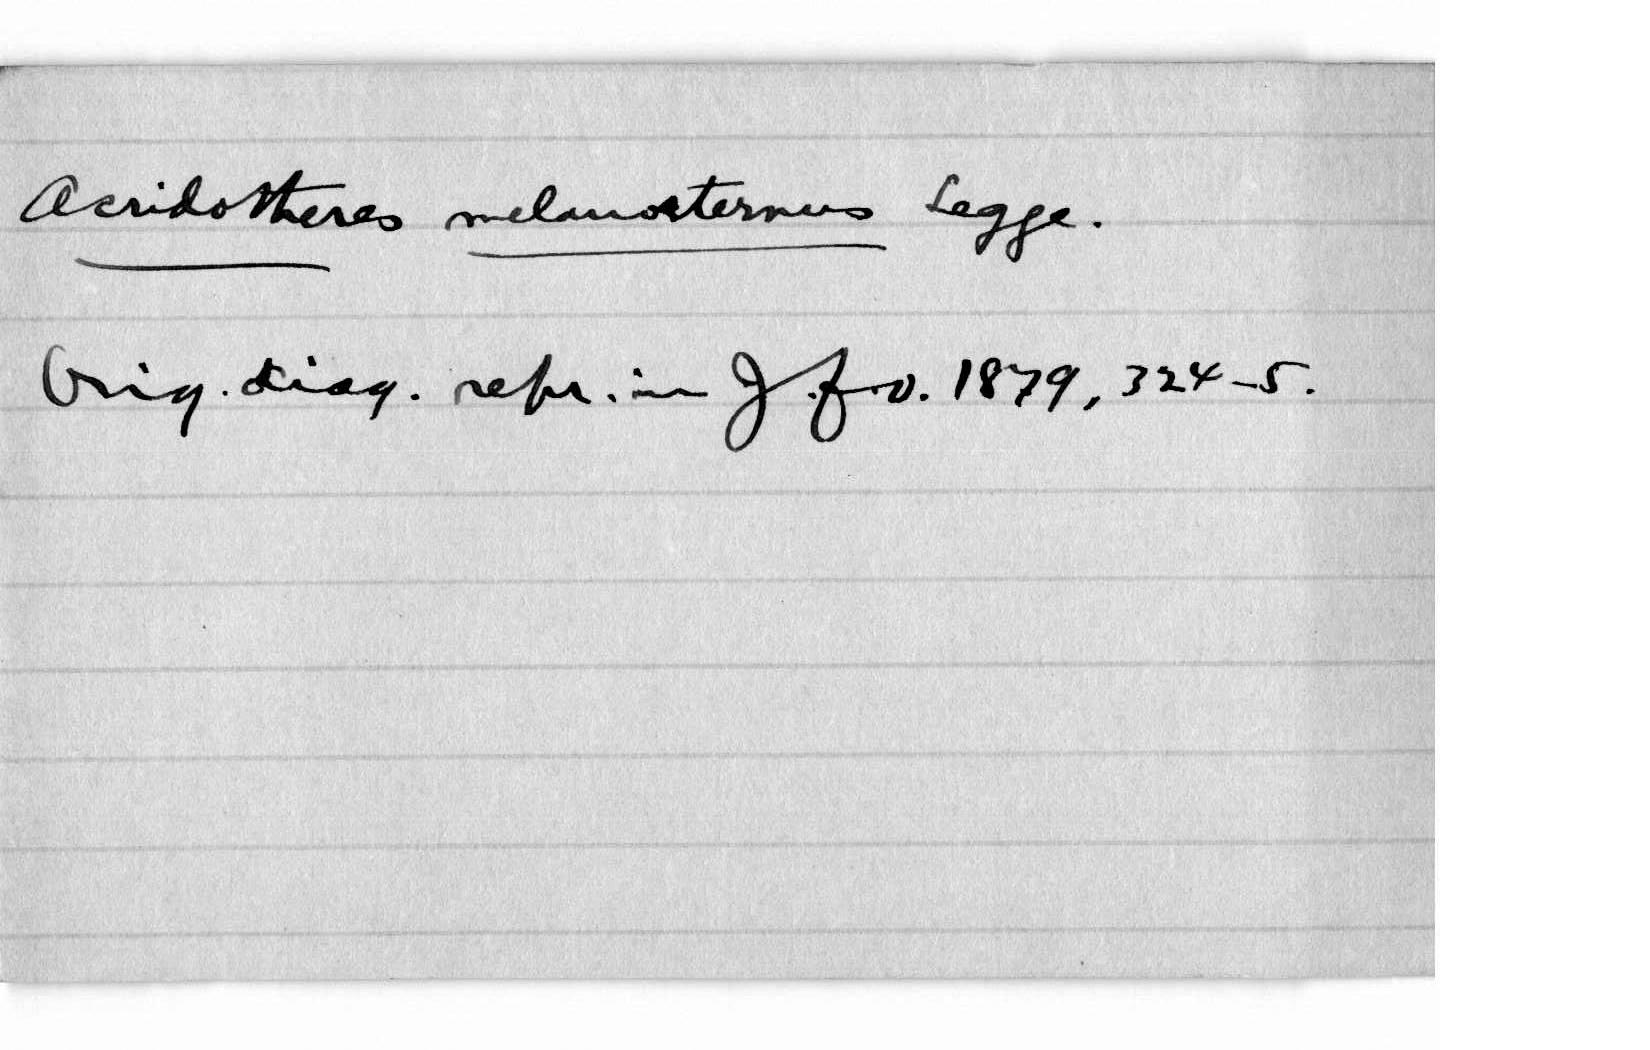 Acridotheres melanosternus Legge.
Orig. diag. repr. in J.f.O. 1879, 324-5.